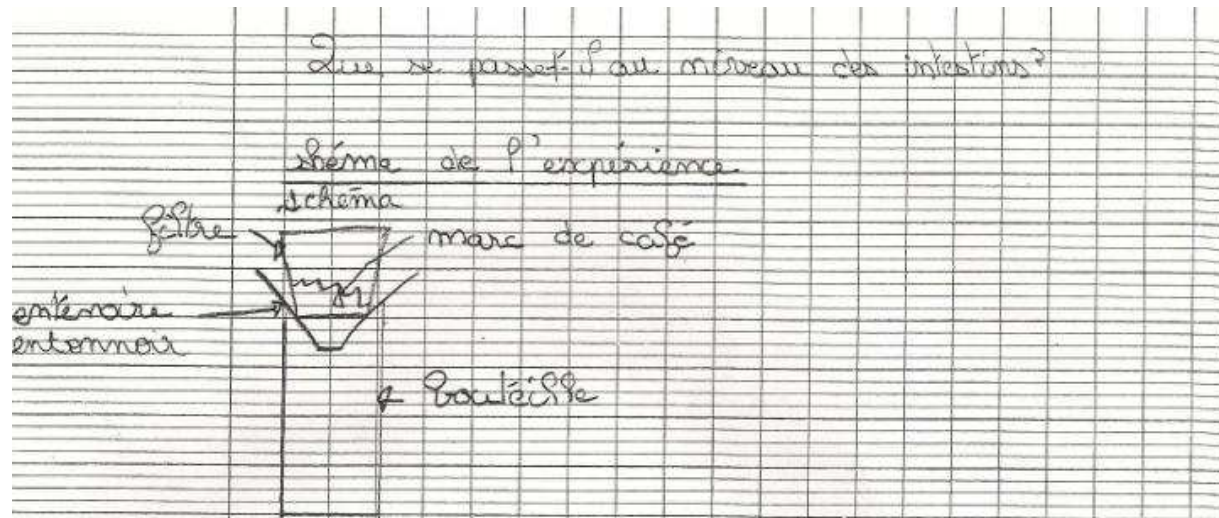 Que se passe-t-il au niveau des intestins?
shéme de l'expérience
schéma
filtre
marc de café
entenoire
entonnoir
boutéille